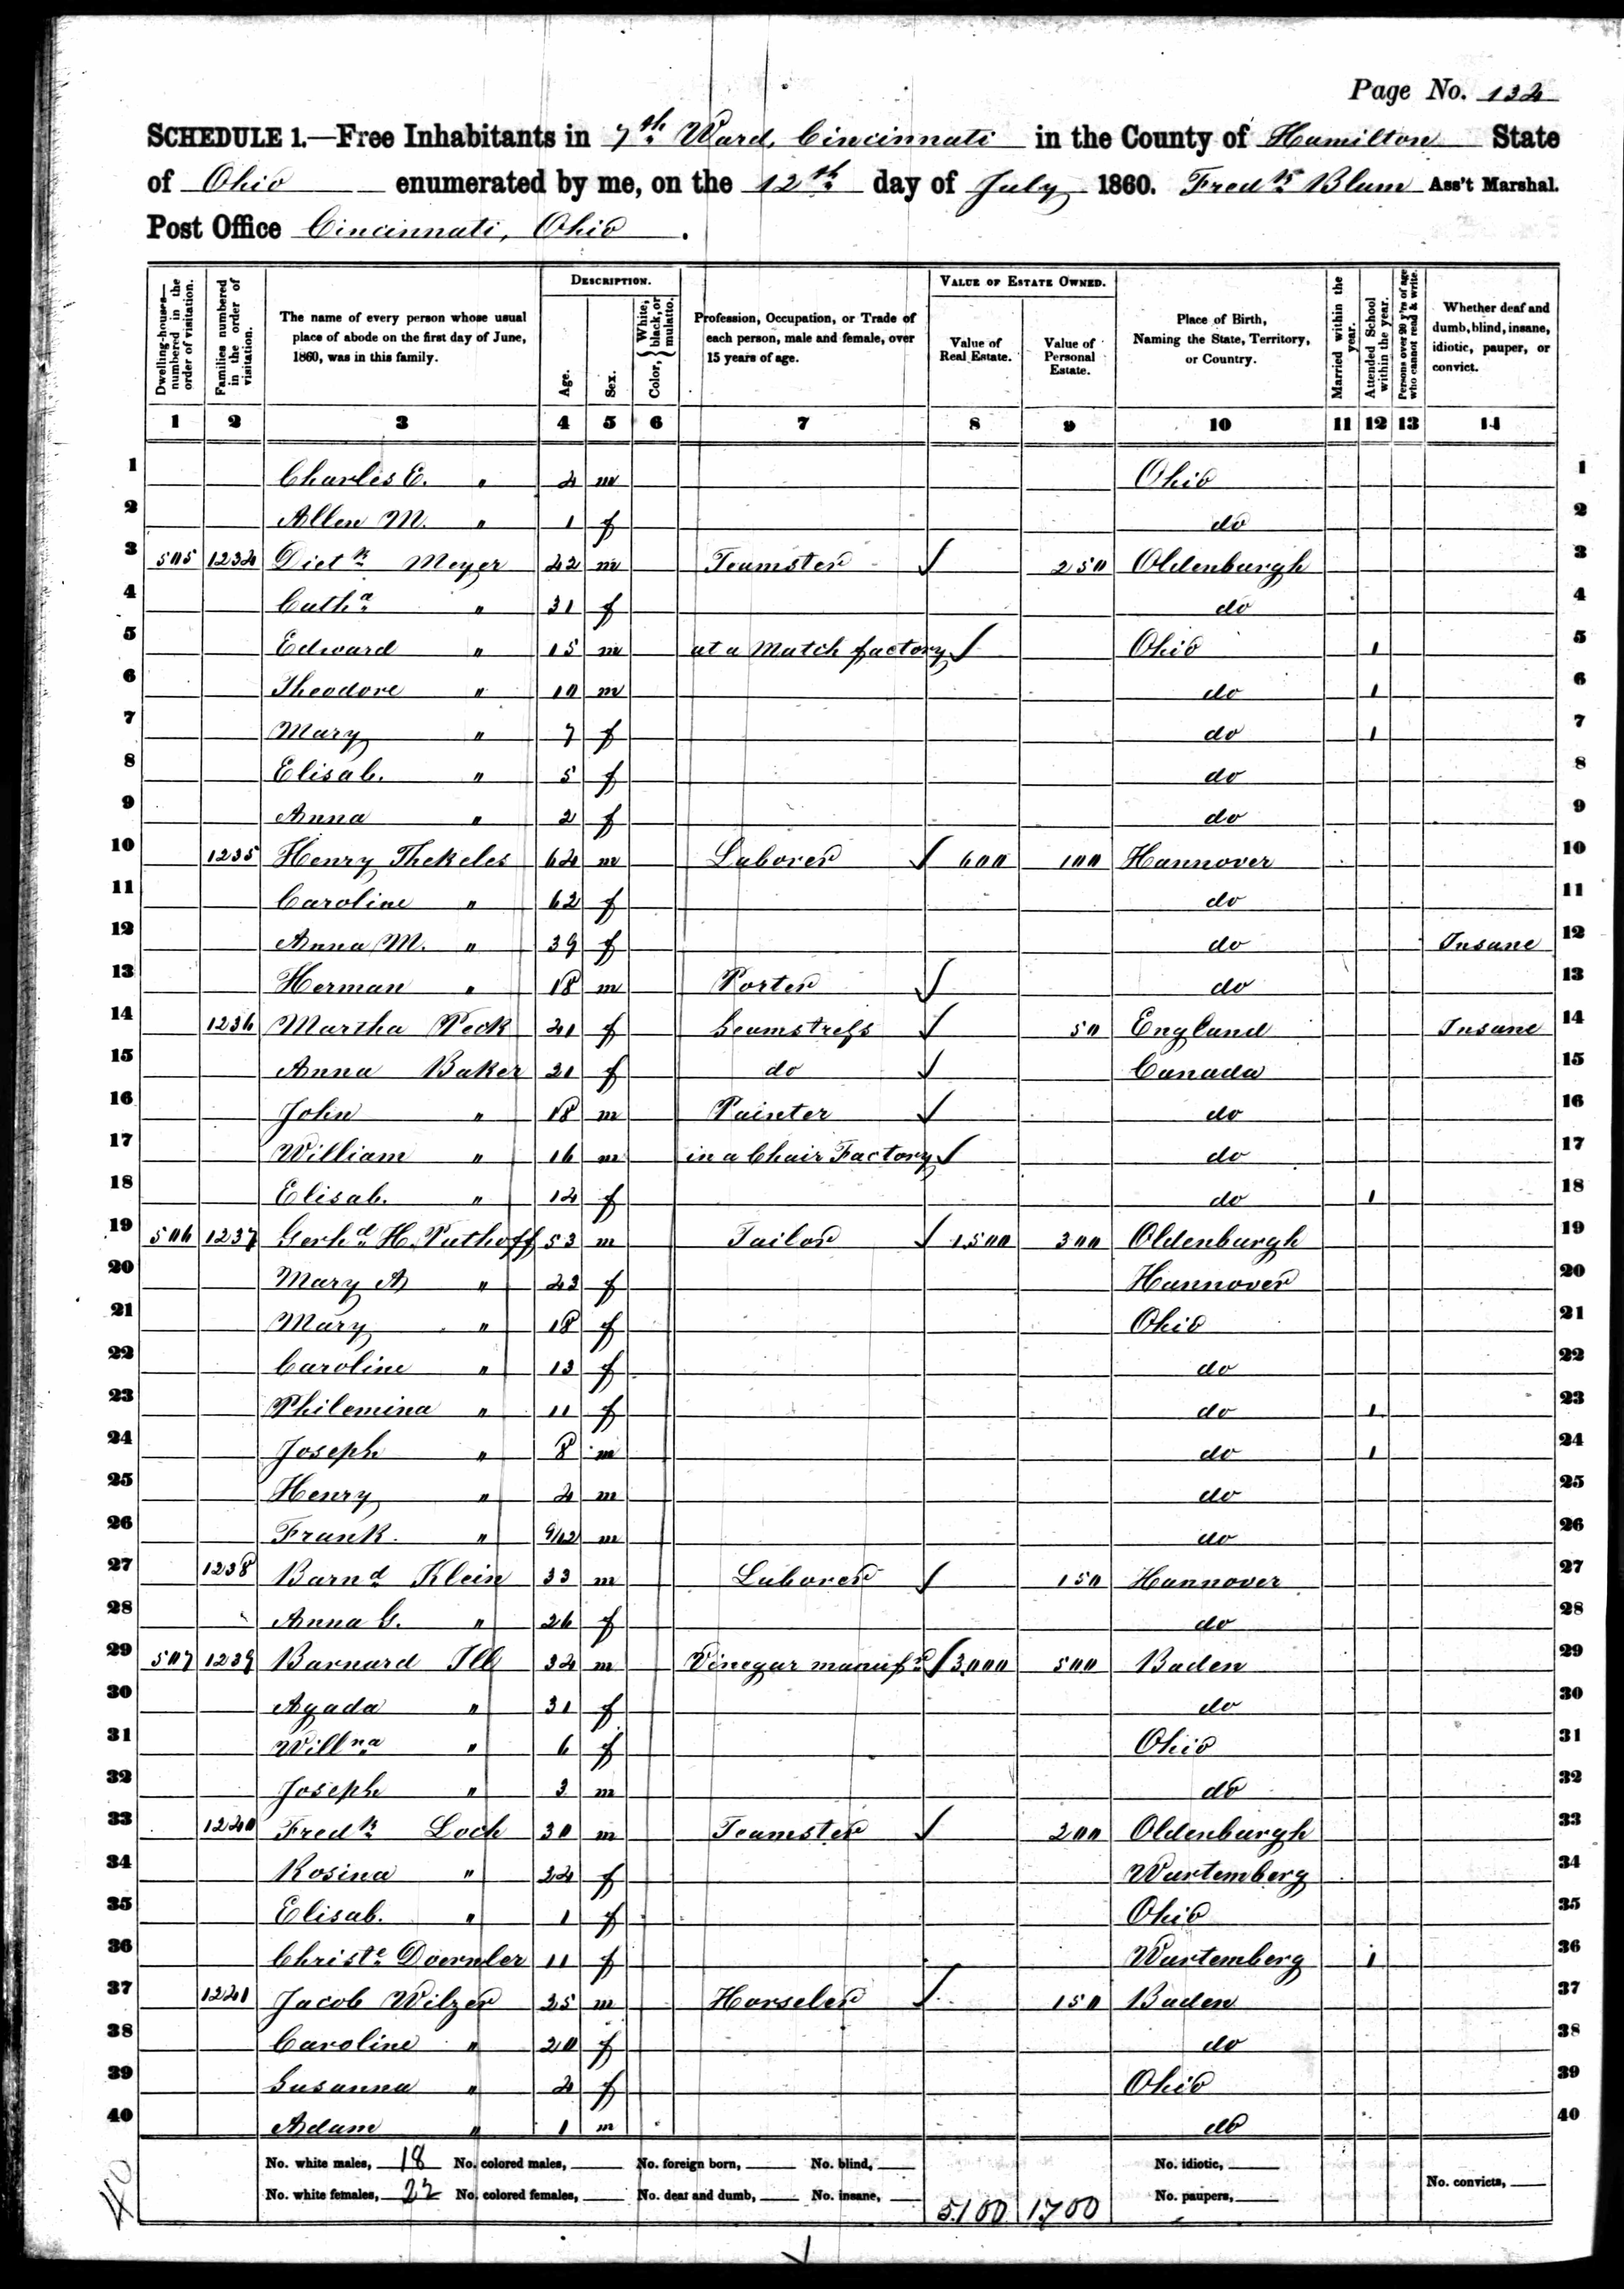 Page No. 134
SCHEDULE 1.—Free Inhabitants in 7th Ward, Cincinnati in the County of Hamilton State
of Ohio enumerated by me, on the 12th day of July 1860. Fredk Blum Ass't Marshal.
Post Office Cincinnati, Ohio .
Dwelling-houses—numbered in the order of visitation. Families numbered in the order of visitation. The name of every person whose usual place of abode on the first day of June, 1860, was in this family. DESCRIPTION. Age. Sex. Color, { White, black, or mulatto. Profession, Occupation, or Trade of each person, male and female, over 15 years of age. VALUE OF ESTATE OWNED. Value of Real Estate. Value of Personal Estate. Place of Birth, Naming the State, Territory, or Country. Married within the year. Attended School within the year. Persons over 20 y'rs of age who cannot read & write. Whether deaf and dumb, blind, insane, idiotic, pauper, or convict.
1 2 3 4 5 6 7 8 9 10 11 12 13 14
1 Charles E. " 4 m Ohio 1
2 Allen M. " 1 f do 2
3 505 1234 Dietk Meyer 42 m Teamster ✓ 250 Oldenburgh 3
4 Catha " 31 f do 4
5 Edward " 15 m at a Match factory ✓ Ohio 1 5
6 Theodore " 10 m do 1 6
7 Mary " 7 f do 1 7
8 Elisab. " 5 f do 8
9 Anna " 2 f do 9
10 1235 Henry Thekeles 64 m Laborer ✓ 600 100 Hannover 10
11 Caroline " 62 f do 11
12 Anna M. " 39 f do Insane 12
13 Herman " 18 m Porter ✓ do 13
14 1236 Martha Peck 41 f Seamstress ✓ 50 England Insane 14
15 Anna Baker 21 f do ✓ Canada 15
16 John " 18 m Painter ✓ do 16
17 William " 16 m in a Chair Factory ✓ do 17
18 Elisab. " 14 f do 1 18
19 506 1237 Gerhd H. Puthoff 53 m Tailor ✓ 1,500 300 Oldenburgh 19
20 Mary A " 43 f Hannover 20
21 Mary " 18 f Ohio 21
22 Caroline " 13 f do 22
23 Philemina " 11 f do 1 23
24 Joseph " 8 m do 1 24
25 Henry " 4 m do 25
26 Frank. " 9/12 m do 26
27 1238 Barnd Klein 33 m Laborer ✓ 150 Hannover 27
28 Anna G. " 26 f do 28
29 507 1239 Barnard Ill 34 m Vinegar manufr ✓ 3,000 500 Baden 29
30 Agada " 31 f do 30
31 Willna " 6 f Ohio 31
32 Joseph " 3 m do 32
33 1240 Fredk Loch 30 m Teamster ✓ 200 Oldenburgh 33
34 Rosina " 24 f Wurtemberg 34
35 Elisab. " 1 f Ohio 35
36 Christe Doernler 11 f Wurtemberg 1 36
37 1241 Jacob Wilzer 25 m Horseler ✓ 150 Baden 37
38 Caroline " 20 f do 38
39 Susanna " 4 f Ohio 39
40 Adam " 1 m do 40
No. white males, 18 No. colored males, No. foreign born, No. blind, No. idiotic,
No. white females, 22 No. colored females, No. deaf and dumb, No. insane, 5,100 1,700 No. paupers, No. convicts,
40